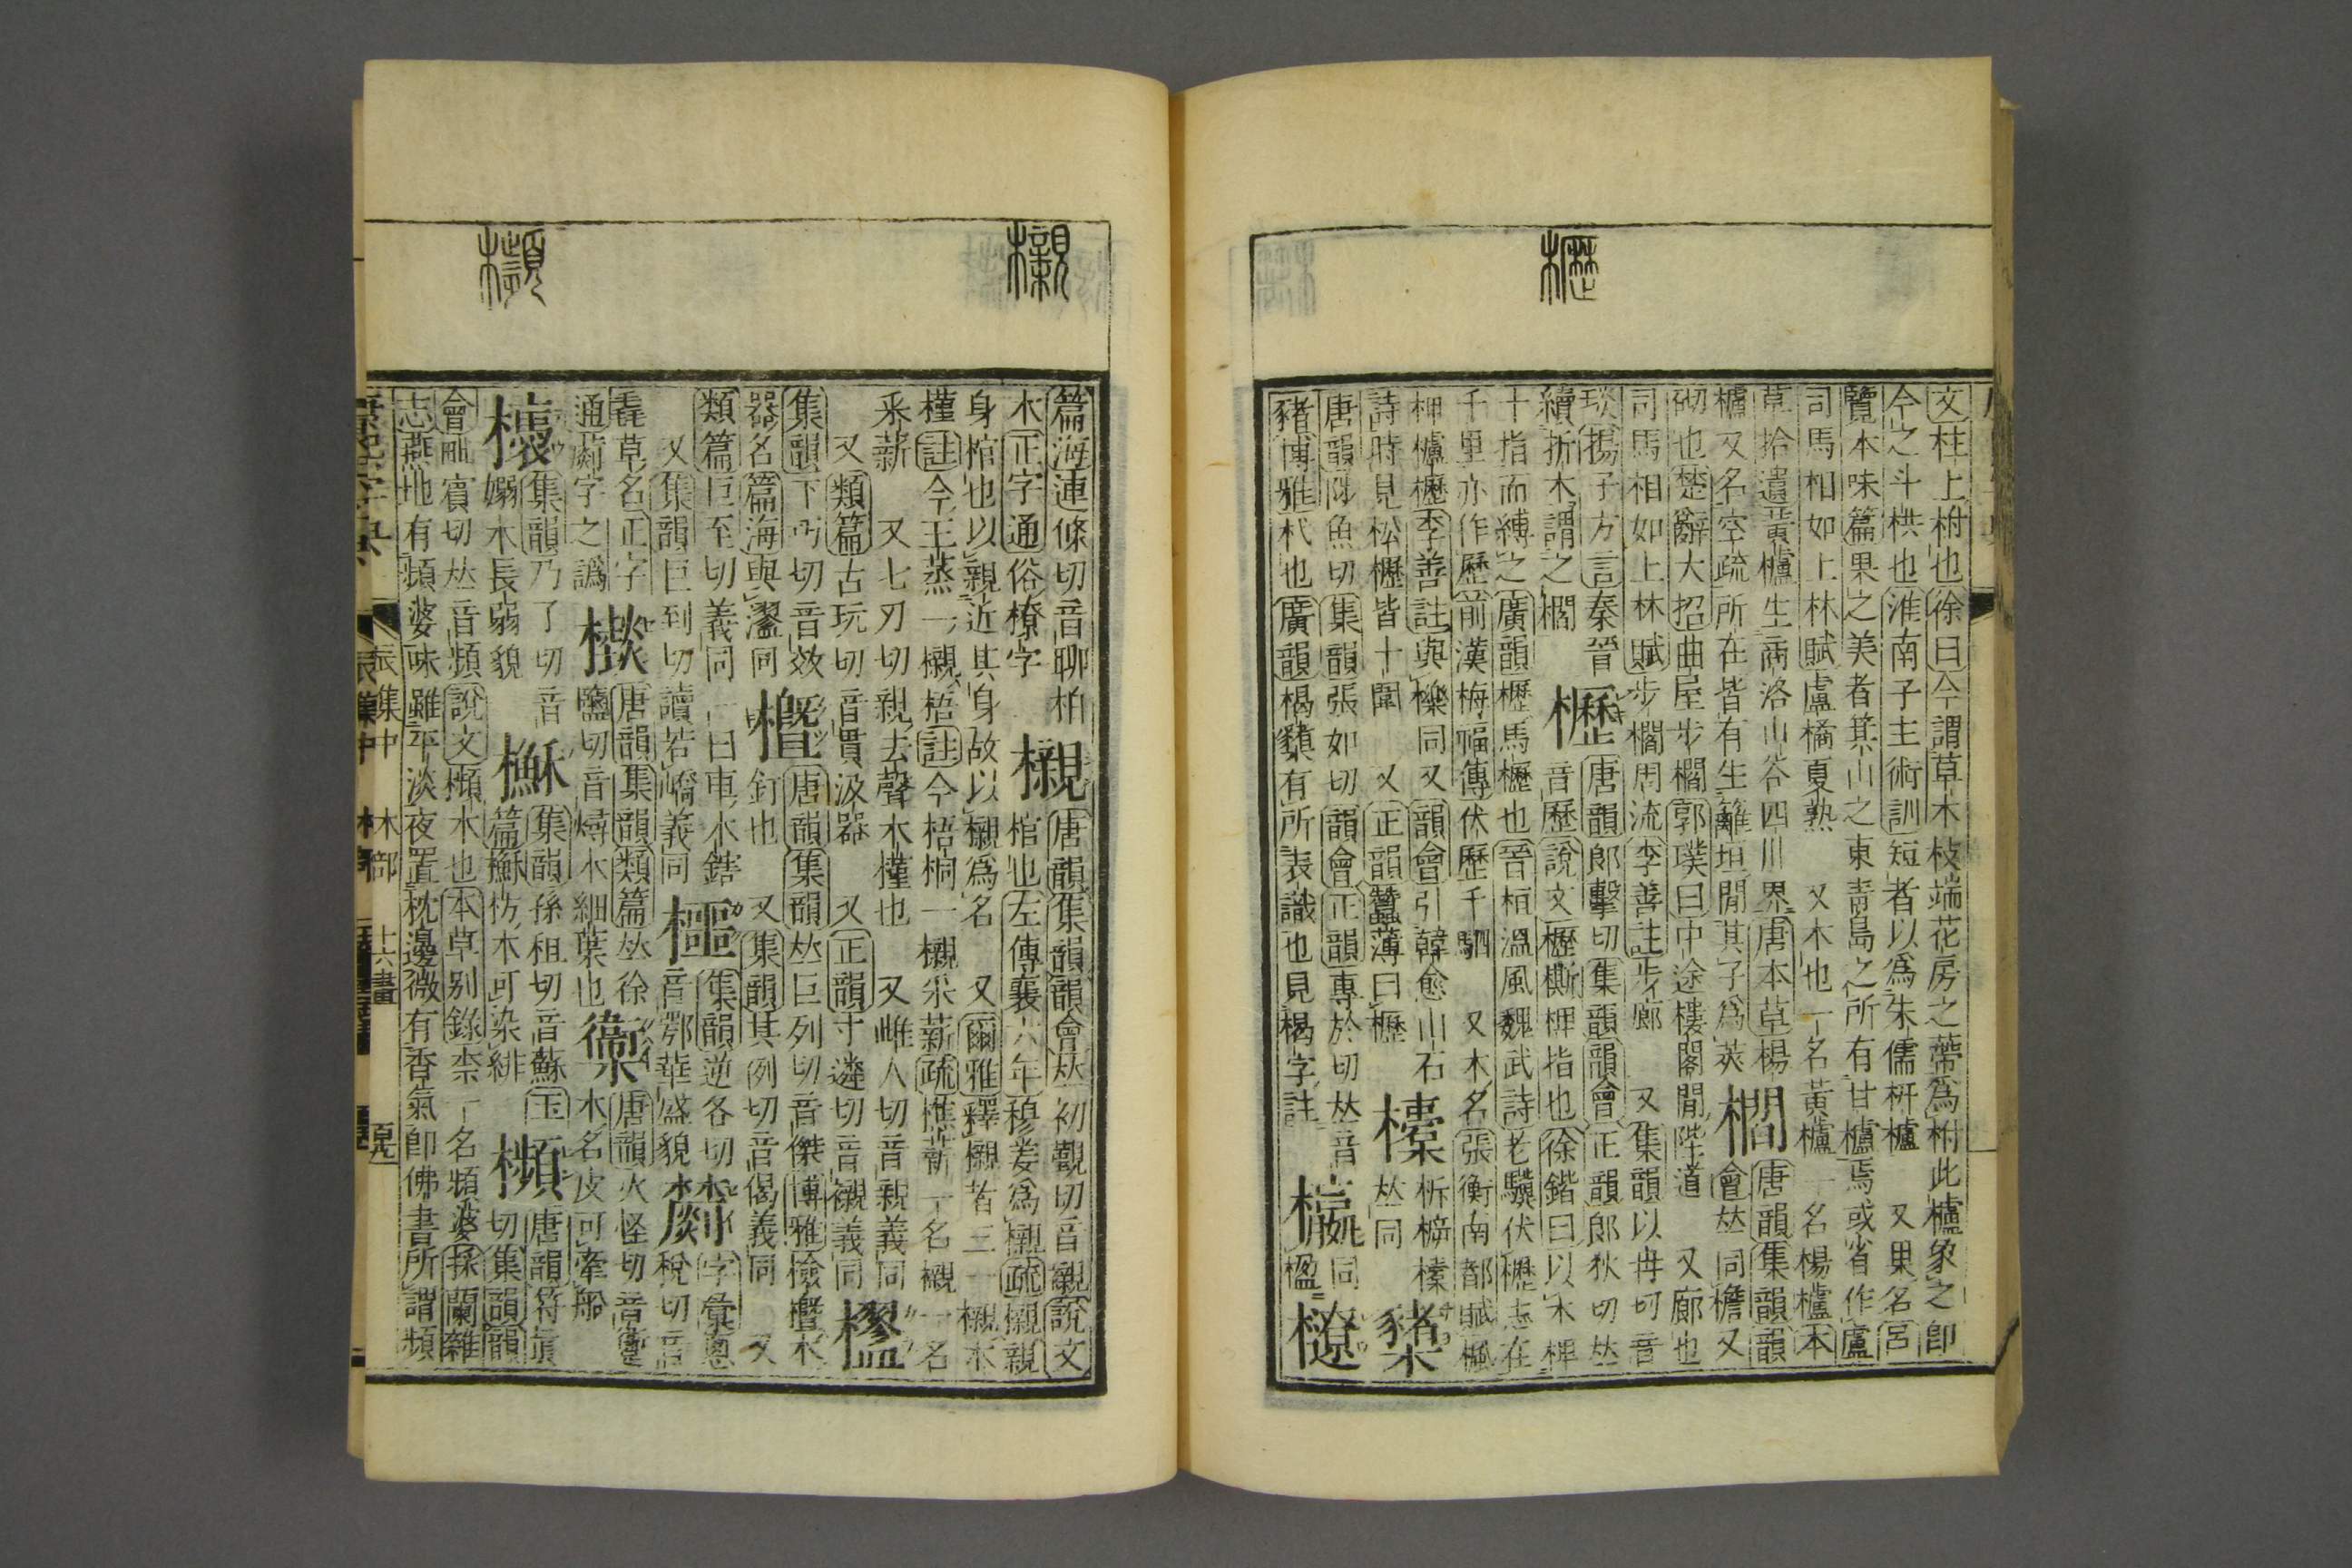 櫪
文柱上柎也徐曰今謂草木枝端花房之蔕爲柎此櫨象之卽
今之斗栱也淮南子主術訓短者以爲朱儒枅櫨 又果名呂
覽本味篇果之美者箕山之東靑島之所有甘櫨焉或省作盧
司馬相如上林賦盧橘夏熟 又木也一名黃櫨一名楊櫨本
草拾遺黃櫨生商洛山谷四川界唐本草楊
櫨又名空疏所在皆有生籬垣閒其子爲莢
櫩 唐韻集韻韻
會𠀤同檐又
砌也楚辭大招曲屋步櫩郭璞曰中途樓閣閒陛道 又廊也
司馬相如上林賦步櫩周流李善註步廊 又集韻以冉切音
琰揚子方言秦晉
續折木謂之櫩
櫪 唐韻郞擊切集韻韻會正韻郞狄切𠀤
音歷說文櫪㯕椑指也徐鍇曰以木椑
十指而縛之廣韻櫪馬櫪也晉桓溫風魏武詩老驥伏櫪志在
千里亦作歷前漢梅福傳伏歷千駟 又木名張衡南都賦楓
柙櫨櫪李善註與櫟同又韻會引韓愈山石
詩時見松櫪皆十圍 又正韻蠶薄曰櫪
𠀤同
櫫
唐韻陟魚切集韻張如切韻會正韻專於切𠀤音
豬博雅杙也廣韻楬櫫有所表識也見楬字註
同
楹
櫬
櫇
篇海連條切音聊柏
木正字通俗橑字
櫬 唐韻集韻韻會𠀤初覲切音襯說文
棺也左傳襄六年穆姜爲櫬疏櫬親
身棺也以親近其身故以櫬爲名 又爾雅釋櫬者三一櫬木
槿註今王蒸一櫬梧註今梧桐一櫬采薪疏樵薪一名櫬一名
采薪 又七刃切親去聲木槿也 又雌人切音親義同
又類篇古玩切音貫汲器 又正韻寸遴切音襯義同
集韻下巧切音效
器名篇海與㶉同
櫭 唐韻集韻𠀤巨列切音傑博雅檢櫭木
釘也 又集韻其列切音偈義同 又
類篇巨至切義同一曰車木鎋
又集韻巨到切讀若嶠義同
櫮 集韻逆各切
音鄂華盛貌
字彙蔥
稅切音
毳草名正字
通字之譌
唐韻集韻類篇𠀤徐
鹽切音燖木細葉也
唐韻火怪切音
木名皮可牽船
集韻乃了切音
嫋木長弱貌
櫯 集韻孫租切音蘇玉
篇櫯枋木可染緋
櫇 唐韻符眞
切集韻韻
會毗賓切𠀤音頻說文櫇木也本草別錄柰一名頻婆採蘭雜
志燕地有頻婆味雖平淡夜置枕邊微有香氣卽佛書所謂頻
辰集中 木部 十六畫